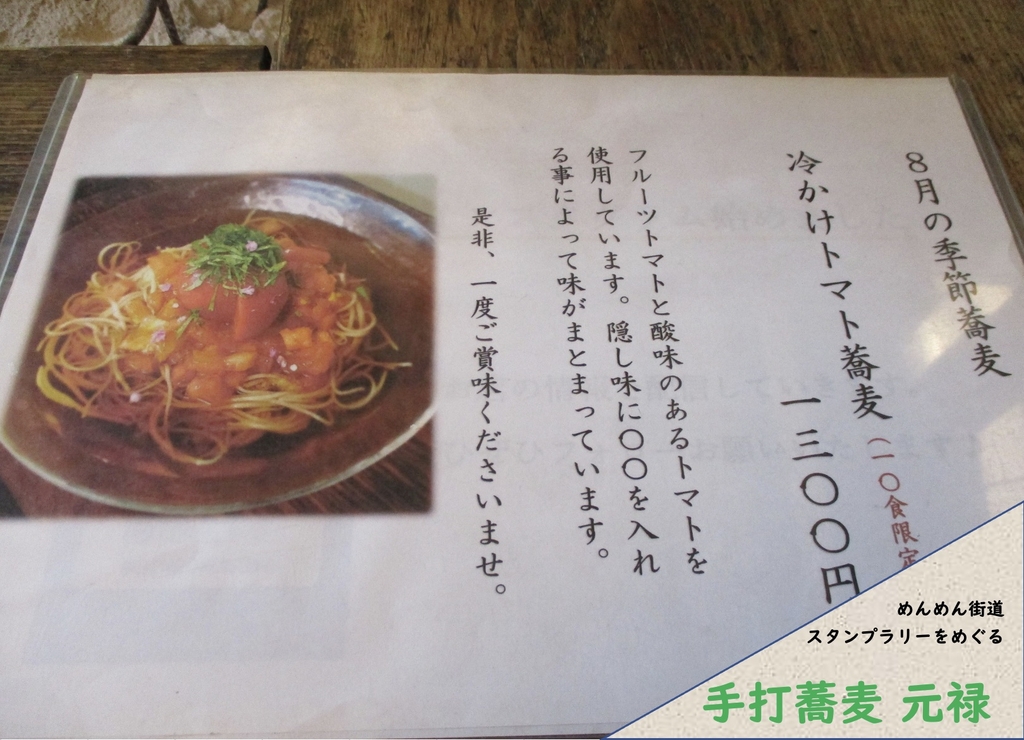 8月の季節蕎麦
冷かけトマト蕎麦(一〇食限定
一三〇〇円
フルーツトマトと酸味のあるトマトを
使用しています。隠し味に〇〇を入れ
る事によって味がまとまっています。
是非、一度ご賞味くださいませ。
めんめん街道
スタンプラリーをめぐる
手打蕎麦 元禄